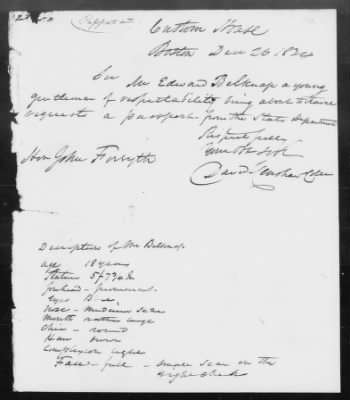 Custom House
Boston Dec 26 1834
Sir Mr Edward Belknap a young
gentleman of respectability being about to
requests a passport from the State Department
Respectfully
Your Ob Sevt
David Henshaw Coller
Hon John Forsyth
Description of Mr Belknap
age 18 years
Stature 5 f 7 3/4 In
forehead - prominent
Eyes Blue
nose - medium size
Mouth rather large
Chin - round
Hair brown
Complexion light
Face - full - small scar on the
right cheek